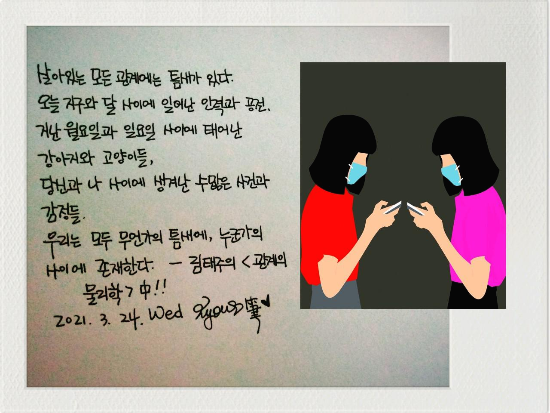 살아있는 모든 관계에는 틈새가 있다.
오늘 지구와 달 사이에 일어난 인력과 공전,
지난 월요일과 일요일 사이에 태어난
강아지와 고양이들,
당신과 나 사이에 생겨난 수많은 사건과
감정들.
우리는 모두 무언가의 틈새에, 누군가의
사이에 존재한다. — 림태주의 <관계의
물리학> 中!!
2021. 3. 24. Wed